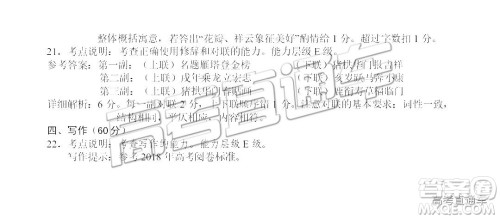 整体概括寓意，若答出“花瓣、祥云象征美好”酌情给 1 分。超过字数扣 1 分。
21. 考点说明：考查正确使用修辞和对联的能力。能力层级 E 级。
参考答案：第一副：（上联）名题雁塔登金榜 （下联）猪拱 门报吉祥
第二副：（上联）戊年乘龙立宏志 （下联）
第三副：（上联） （下联） 临门
详细解析：6 分。每一副对联 2 分， 下联 对联的基本要求：词性一致，
结构相 平仄相 内容相
四、写作（60 分）
22. 考点说明：考查写作的能力。能力层级 E 级。
写作提示：参考 2018 年高考阅卷标准。
高考直通车
高考直通车
答案圈